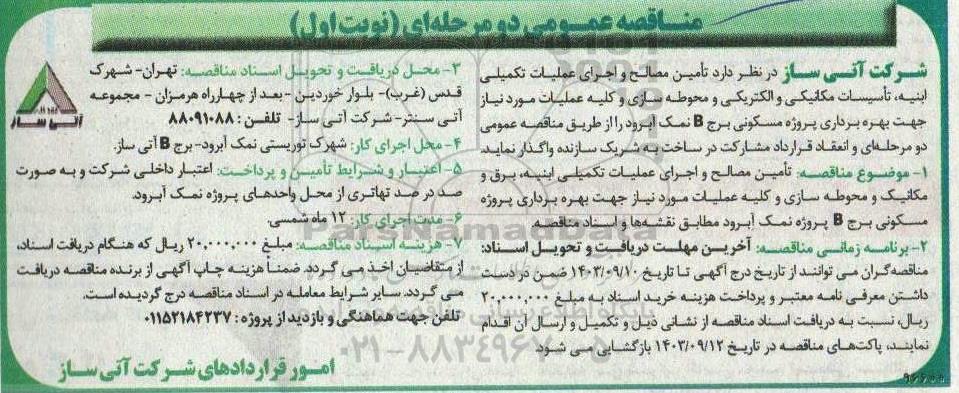 مناقصه عمومی دو مرحله‌ای (نوبت اول)
شرکت آتی ساز در نظر دارد تأمین مصالح و اجرای عملیات تکمیلی
ابنیه، تأسیسات مکانیکی و الکتریکی و محوطه سازی و کلیه عملیات مورد نیاز
جهت بهره برداری پروژه مسکونی برج B نمک آبرود را از طریق مناقصه عمومی
دو مرحله‌ای و انعقاد قرارداد مشارکت در ساخت به شریک سازنده واگذار نماید.
۱- موضوع مناقصه: تأمین مصالح و اجرای عملیات تکمیلی ابنیه، برق و
مکانیک و محوطه سازی و کلیه عملیات مورد نیاز جهت بهره برداری پروژه
مسکونی برج B پروژه نمک آبرود مطابق نقشه‌ها و اسناد مناقصه
۲- برنامه زمانی مناقصه: آخرین مهلت دریافت و تحویل اسناد:
مناقصه‌گران می توانند از تاریخ درج آگهی تا تاریخ ۱۴۰۳/۰۹/۱۰ ضمن در دست
داشتن معرفی نامه معتبر و پرداخت هزینه خرید اسناد به مبلغ ۲۰,۰۰۰,۰۰۰
ریال، نسبت به دریافت اسناد مناقصه از نشانی ذیل و تکمیل و ارسال آن اقدام
نمایند، پاکت‌های مناقصه در تاریخ ۱۴۰۳/۰۹/۱۲ بازگشایی می شود.
۳- محل دریافت و تحویل اسناد مناقصه: تهران- شهرک
قدس (غرب)- بلوار خوردین - بعد از چهارراه هرمزان - مجموعه
آتی سنتر- شرکت آتی ساز- تلفن: ۸۸۰۹۱۰۸۸
۴- محل اجرای کار: شهرک توریستی نمک آبرود- برج B آتی ساز.
۵- اعتبار و شرایط تأمین و پرداخت: اعتبار داخلی شرکت و به صورت
صد در صد تهاتری از محل واحدهای پروژه نمک آبرود.
۶- مدت اجرای کار: ۱۲ ماه شمسی.
۷- هزینه اسناد مناقصه: مبلغ ۲۰,۰۰۰,۰۰۰ ریال که هنگام دریافت اسناد،
از متقاضیان اخذ می گردد. ضمناً هزینه چاپ آگهی از برنده مناقصه دریافت
می گردد. سایر شرایط معامله در اسناد مناقصه درج گردیده است.
تلفن جهت هماهنگی و بازدید از پروژه: ۰۱۱۵۲۱۸۴۲۳۷
امور قراردادهای شرکت آتی ساز
آتی ساز
ParsNamadData
۰۲۱-۸۸۳۴۹۶۷۰-۵